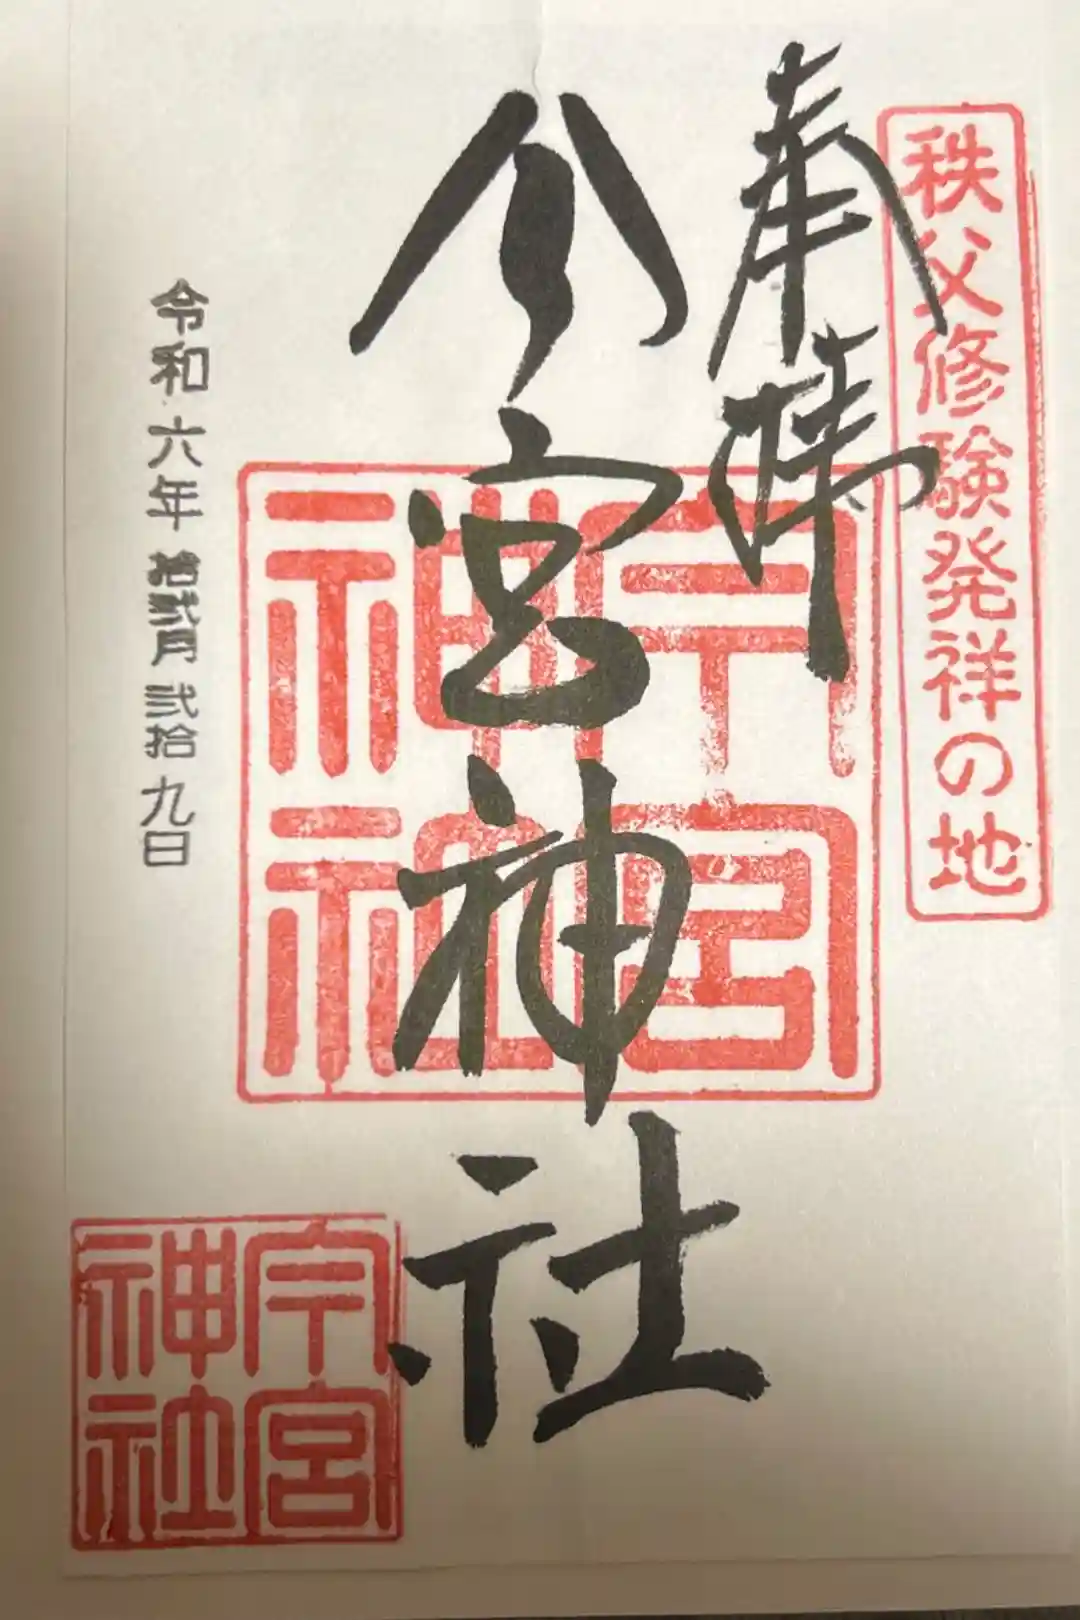 秩父修験発祥の地
奉拝
今宮神社
今宮
神社
令和六年拾弐月弐拾九日
今宮
神社